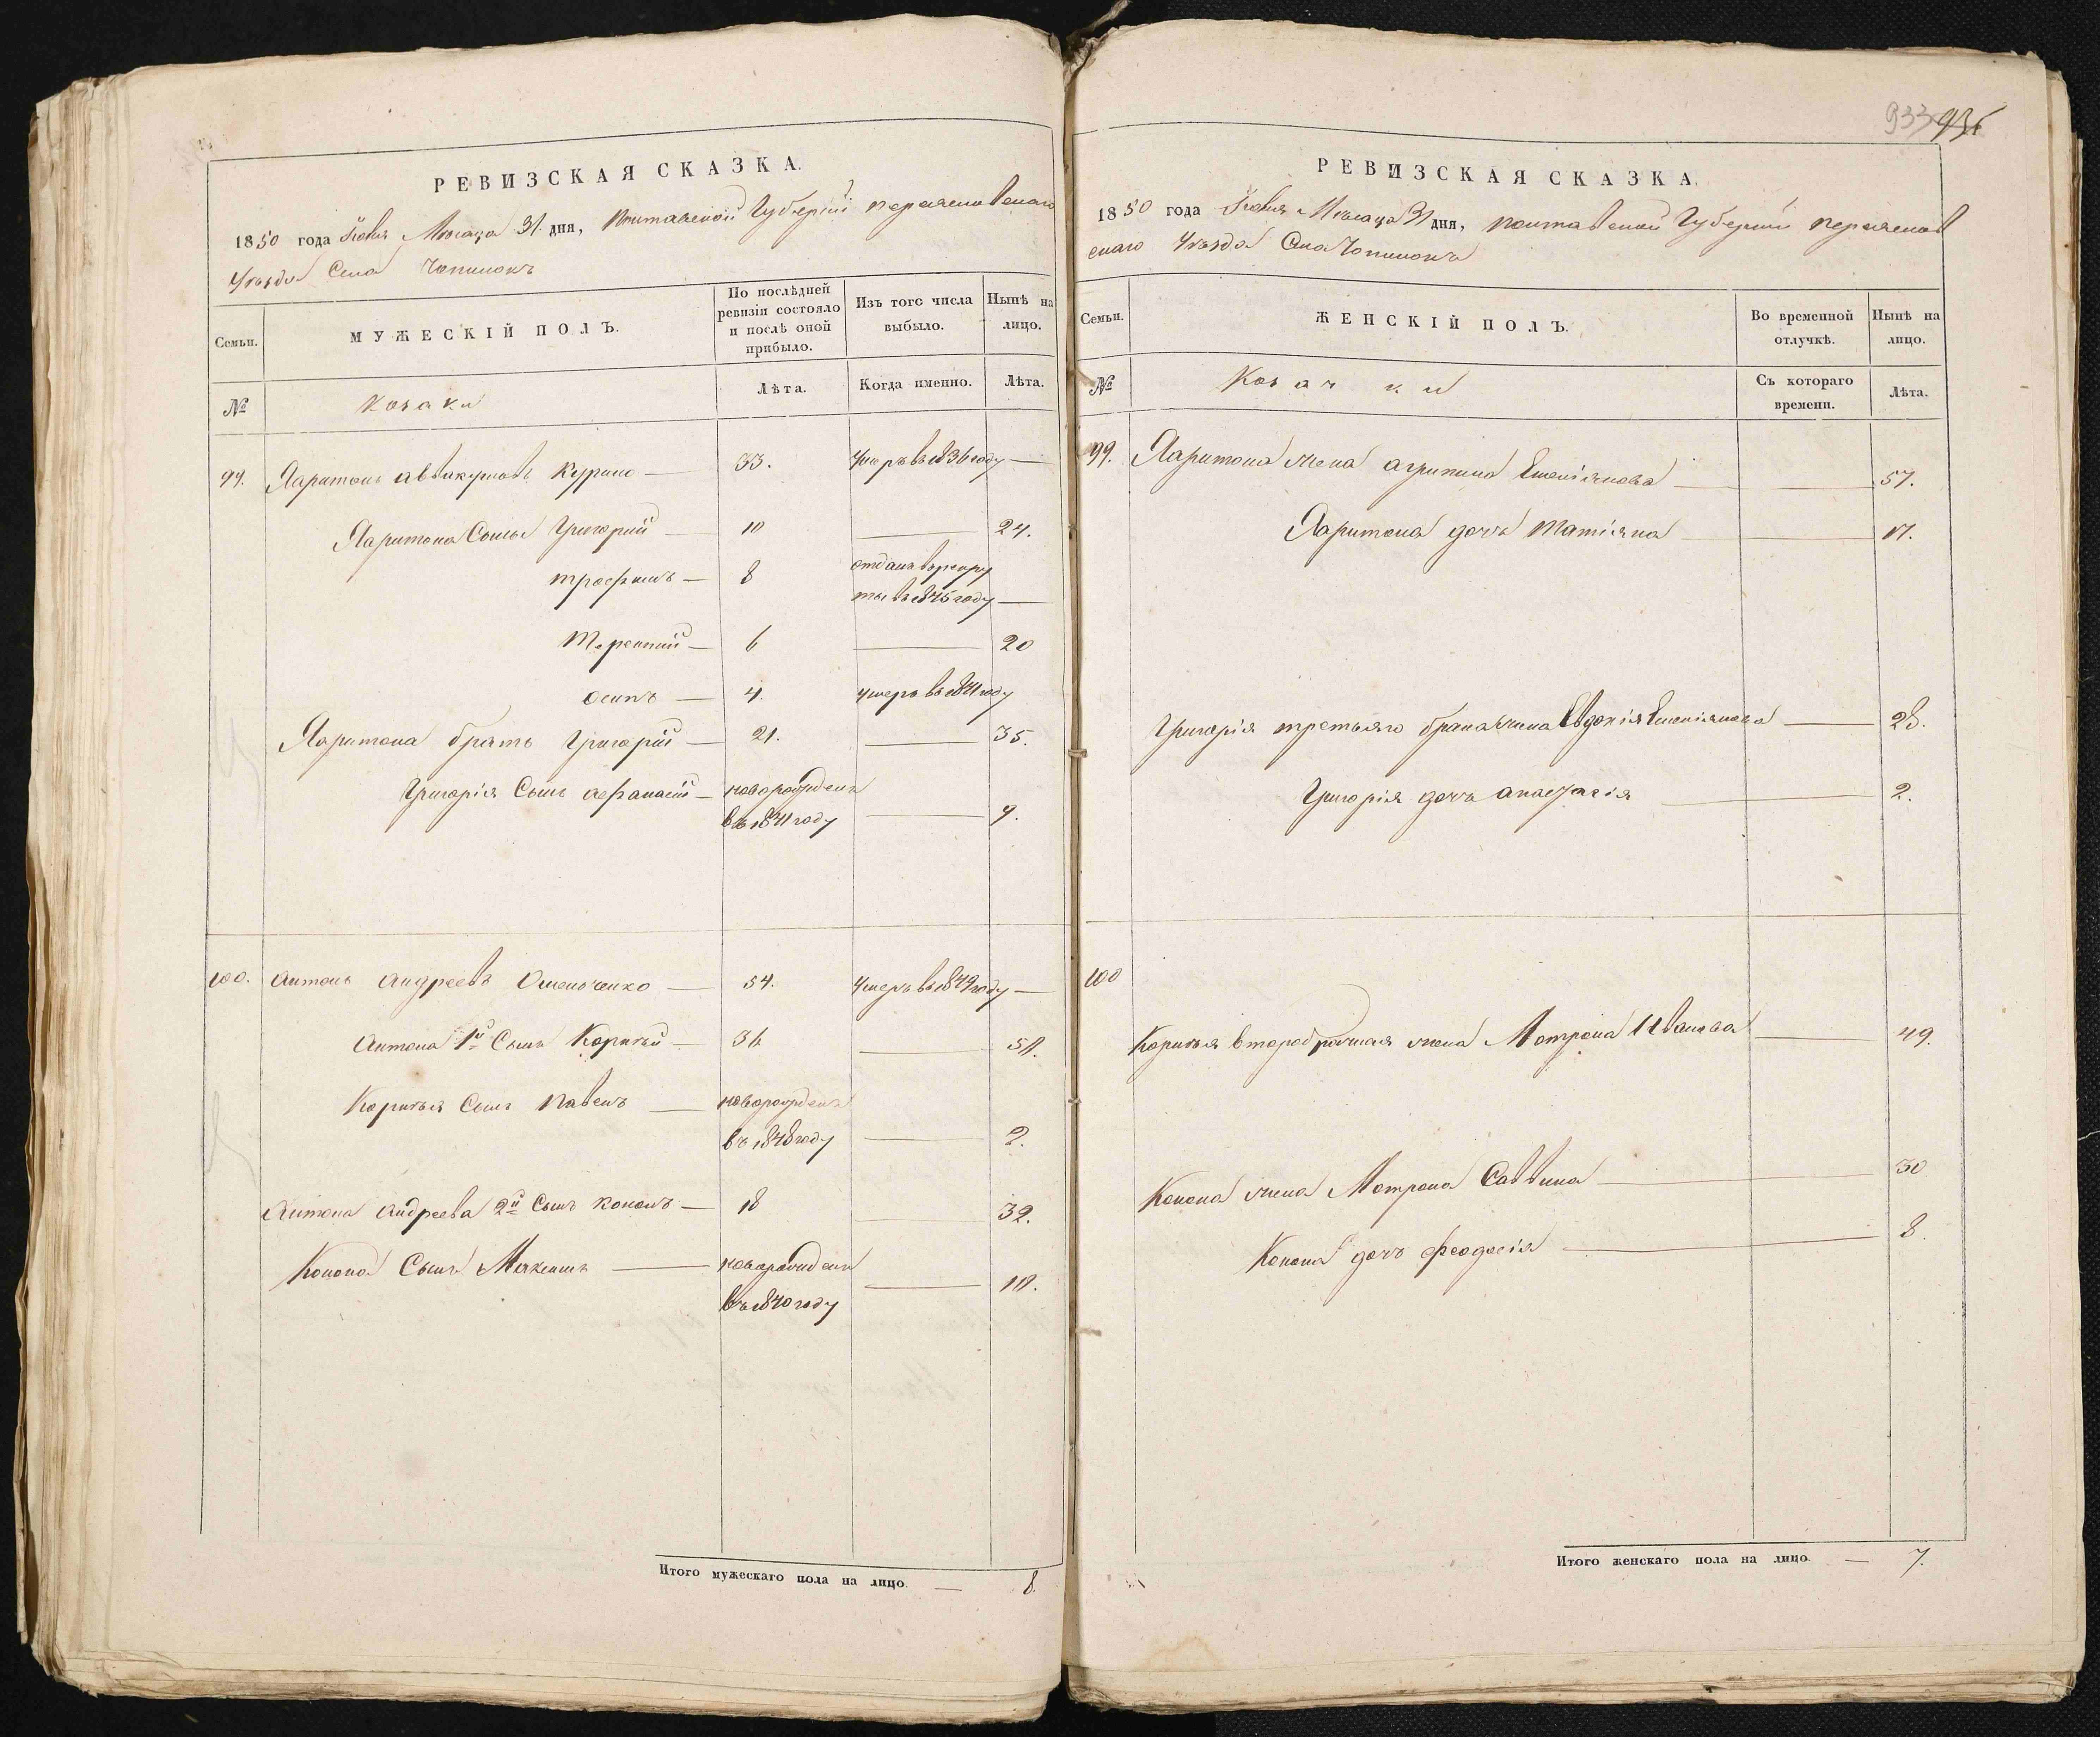 933 936
РЕВИЗСКАЯ СКАЗКА.
1850 года Іюня Мѣсяца 31 дня, Полтавской Губерніи Переяславскаго
Уѣзда Села Чопилокъ
Семьи.
МУЖЕСКІЙ ПОЛЪ.
По послѣдней ревизіи состояло и послѣ оной прибыло.
Изъ того числа выбыло.
Нынѣ на лицо.
№
Козаки
Лѣта.
Когда именно.
Лѣта.
99. Харитонъ Аввакумовъ — 33. умеръ въ 1836 году —
Харитона Сыны Григорій — 10 — 24.
Трофимъ — 8 отданъ въ рекру
ты въ 1845 году —
Терентій — 6 — 20
Осипъ — 4. умеръ въ 1841 году
Харитона братъ Григорій — 21. — 35.
Григорія Сынъ Афанасій — новорожденъ
въ 1841 году — 9.
100. Антонъ Андреевъ Омельченко — 54. умеръ въ 1849 году —
Антона 1й Сынъ Корнѣй — 36 — 50.
Корнѣя Сынъ Павелъ — новорожденъ
въ 1848 году — 2.
Антона Андреева 2й Сынъ Кононъ — 18 — 32.
Конона Сынъ Максимъ — новорожденъ
въ 1840 году — 10.
Итого мужескаго пола на лицо. — 8.
РЕВИЗСКАЯ СКАЗКА.
1850 года Іюня Мѣсяца 31 дня, Полтавской Губерніи Переяслав
скаго Уѣзда Села Чопилокъ
Семьи.
ЖЕНСКІЙ ПОЛЪ.
Во временной отлучкѣ.
Нынѣ на лицо.
№
Козачки
Съ котораго времени.
Лѣта.
99. Харитона жена Агрипина Емеліянова — 57.
Харитона дочь Матіяна — 17.
Григорія третьяго брака жена Евдокія Емеліянова — 28.
Григорія дочь Анастасія — 2.
100
Корнѣя второбрачная жена Мотрона Иванова — 49.
Конона жена Мотрона Саввина — 30
Конона дочь Феодосія — 8.
Итого женскаго пола на лицо. — 7.